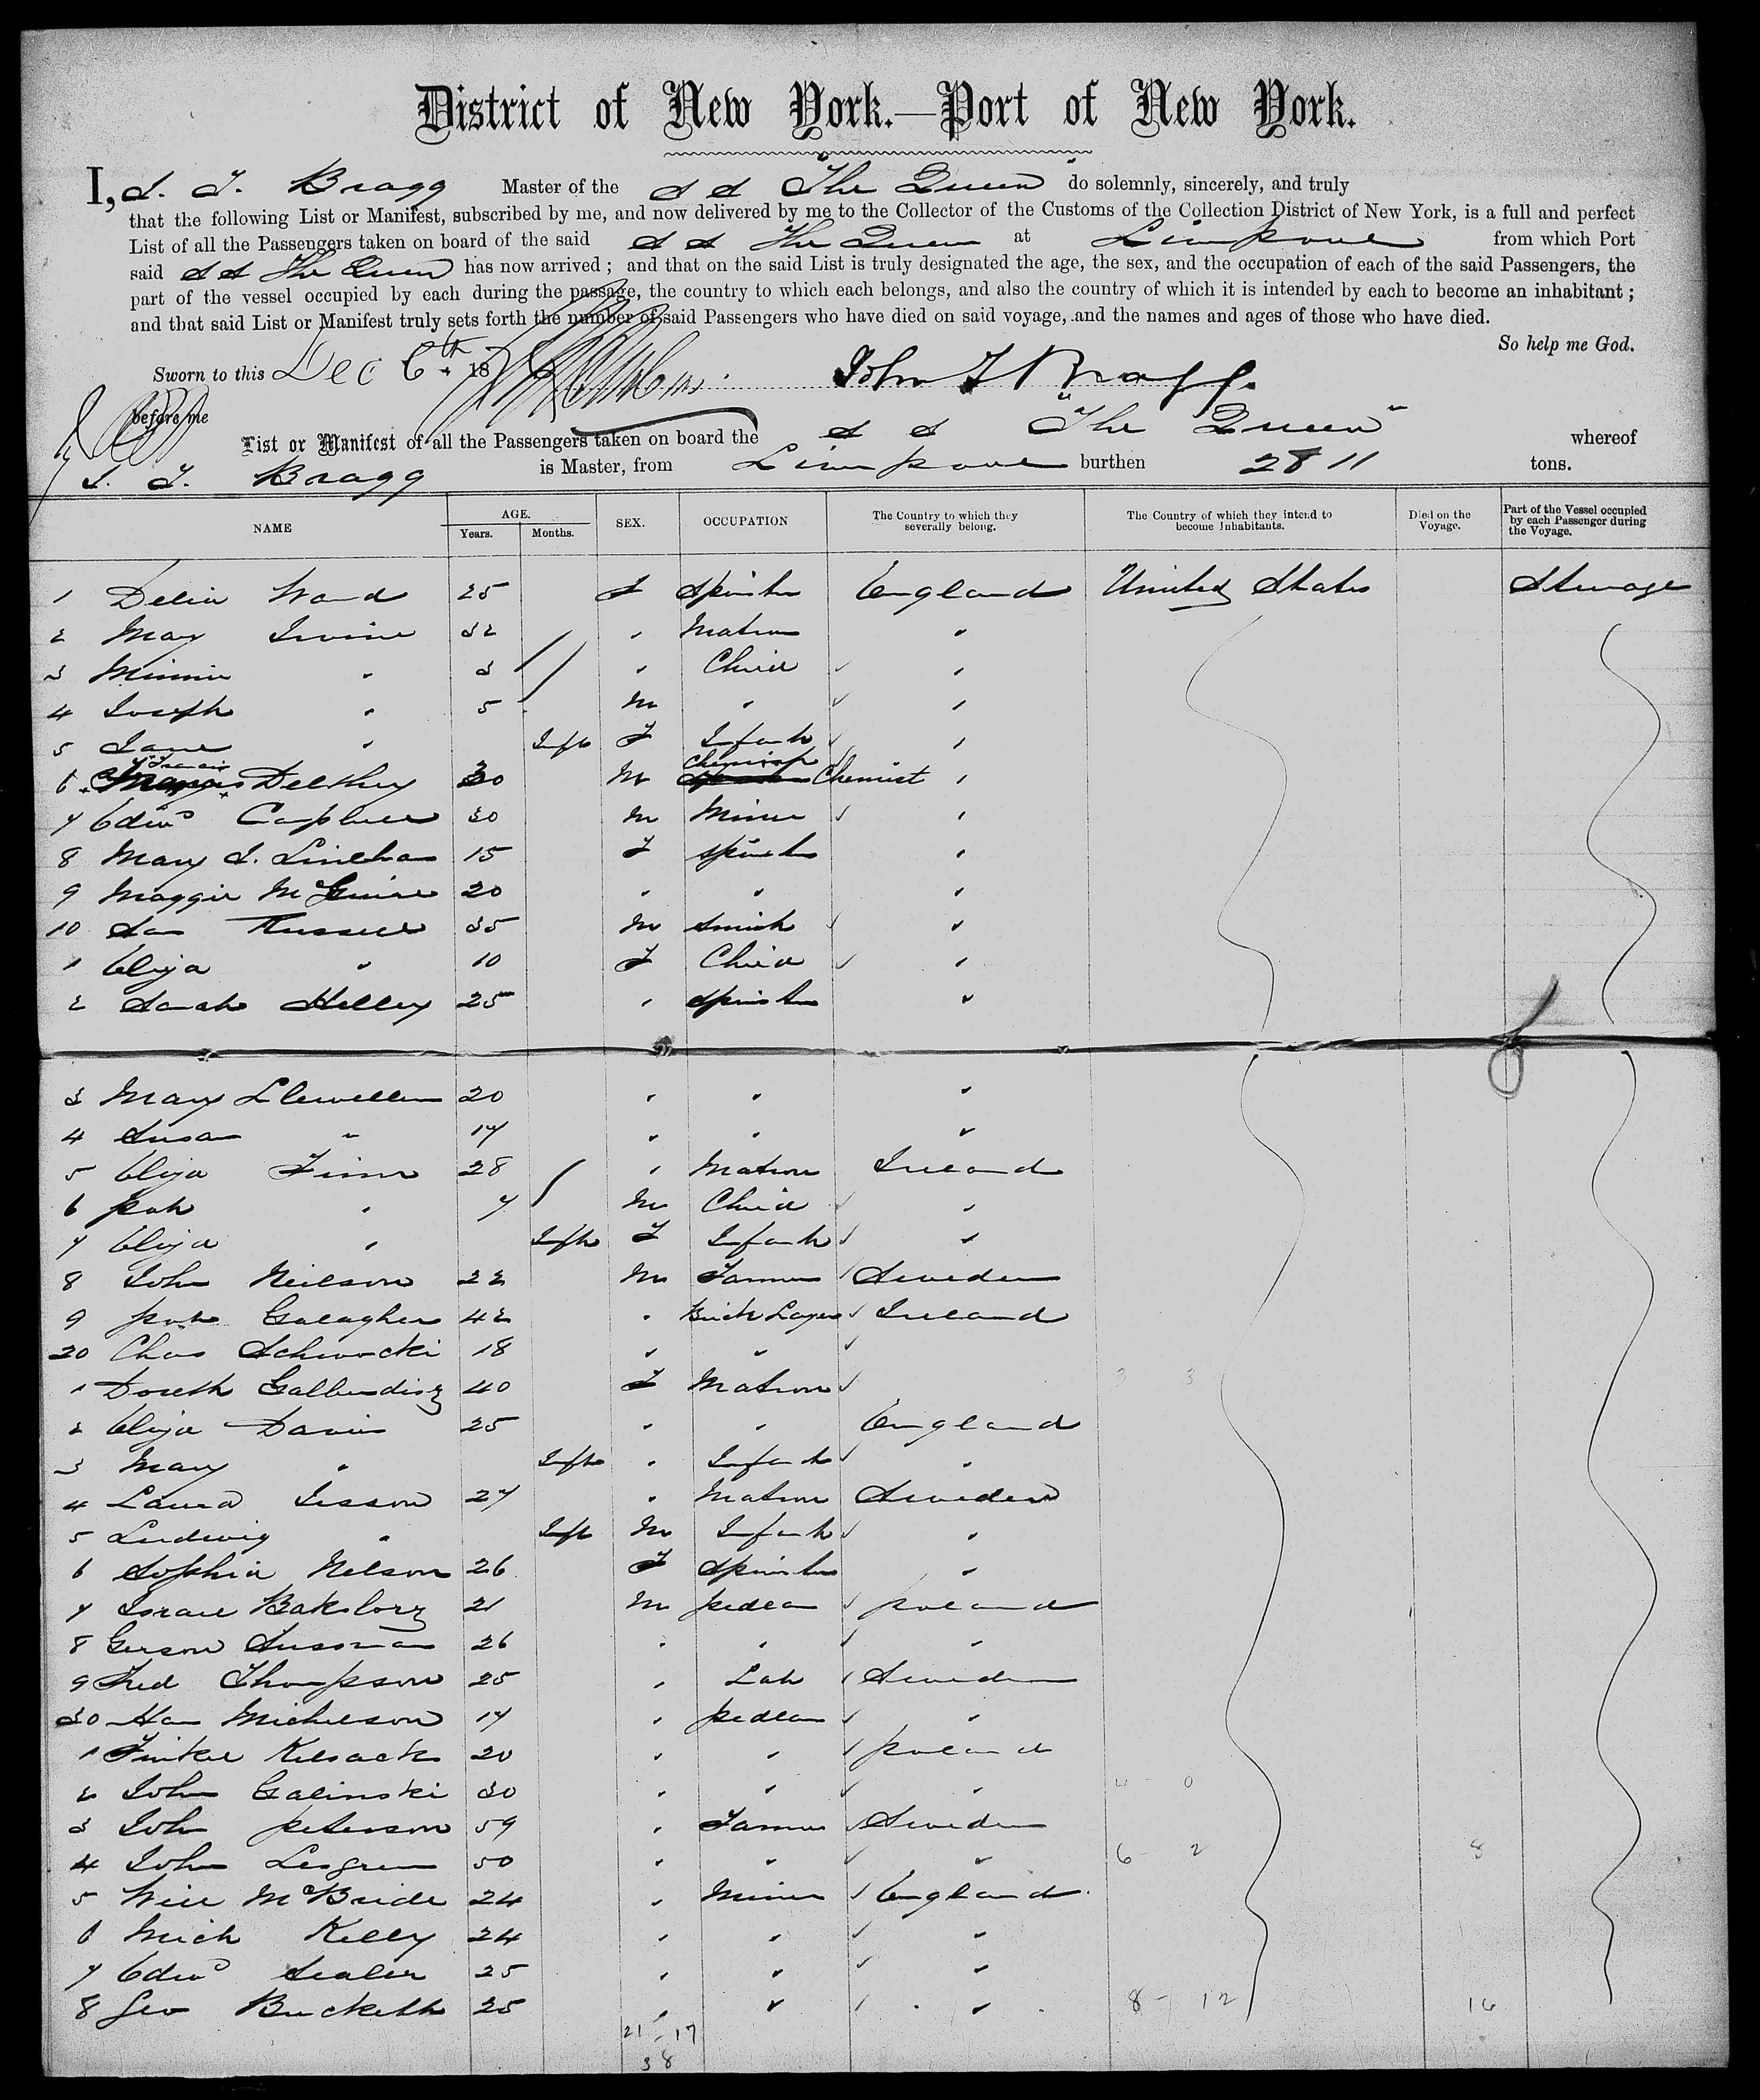 District of New York.—Port of New York.
I, S. F. Bragg Master of the S S "The Queen" do solemnly, sincerely, and truly
that the following List or Manifest, subscribed by me, and now delivered by me to the Collector of the Customs of the Collection District of New York, is a full and perfect
List of all the Passengers taken on board of the said S S The Queen at Liverpool from which Port
said S S The Queen has now arrived; and that on the said List is truly designated the age, the sex, and the occupation of each of the said Passengers, the
part of the vessel occupied by each during the passage, the country to which each belongs, and also the country of which it is intended by each to become an inhabitant;
and that said List or Manifest truly sets forth the number of said Passengers who have died on said voyage, and the names and ages of those who have died.
So help me God.
Sworn to this Dec 6th 18 John F Bragg.
before me
List or Manifest of all the Passengers taken on board the S S "The Queen" whereof
F. Bragg is Master, from Liverpool burthen 2811 tons.
NAME AGE. Years. Months. SEX. OCCUPATION The Country to which they severally belong. The Country of which they intend to become Inhabitants. Died on the Voyage. Part of the Vessel occupied by each Passenger during the Voyage.
1 Delia Ward 25 F Spinster England United States Steerage
2 Mary Irvine 32 " Matron "
3 Minnie " 3 " Child "
4 Joseph " 5 M " "
5 Jane " Inft F Infant "
6 Francis Delthey 30 M Chemist "
7 Edwd 30 M Miner "
8 Mary J. Linehan 15 F Spinster "
9 Maggie McGuire 20 " " "
10 Russell 35 M Smith "
1 Eliza " 10 F Child "
2 Sarah Helley 25 " Spinster "
3 Mary Llewellen 20 " " "
4 Susan " 17 " " "
5 Eliza Finn 28 " Matron Ireland
6 Pat " 7 M Child "
7 Eliza " Inft F Infant "
8 John Neilson 22 M Farmer Sweden
9 Pat Galagher 42 " Brick Layer Ireland
20 Chas Schwocki 18 " "
1 Doreth 40 F Matron
2 Eliza Davis 25 " " England
3 Mary " Inft " Infant "
4 Laura Jesson 27 " Matron Sweden
5 Ludwig " Inft M Infant "
6 Sophia Nelson 26 F Spinster "
7 Israel 21 M Pedlar Poland
8 Gerson Sussman 26 " " "
9 Fred Thompson 25 " Lab Sweden
30 Han Michelson 17 " Pedlar "
1 Kelsack 20 " " Poland
2 John Galinski 30 " " "
3 John Peterson 59 " Farmer Sweden
4 John Lesgren 50 " " "
5 Will McBride 24 " Miner England
6 Mich Kelly 24 " " "
7 Edwd Sealer 25 " " "
8 Geo Buckett 25 " " " 8 - 12 16
21 - 17
38